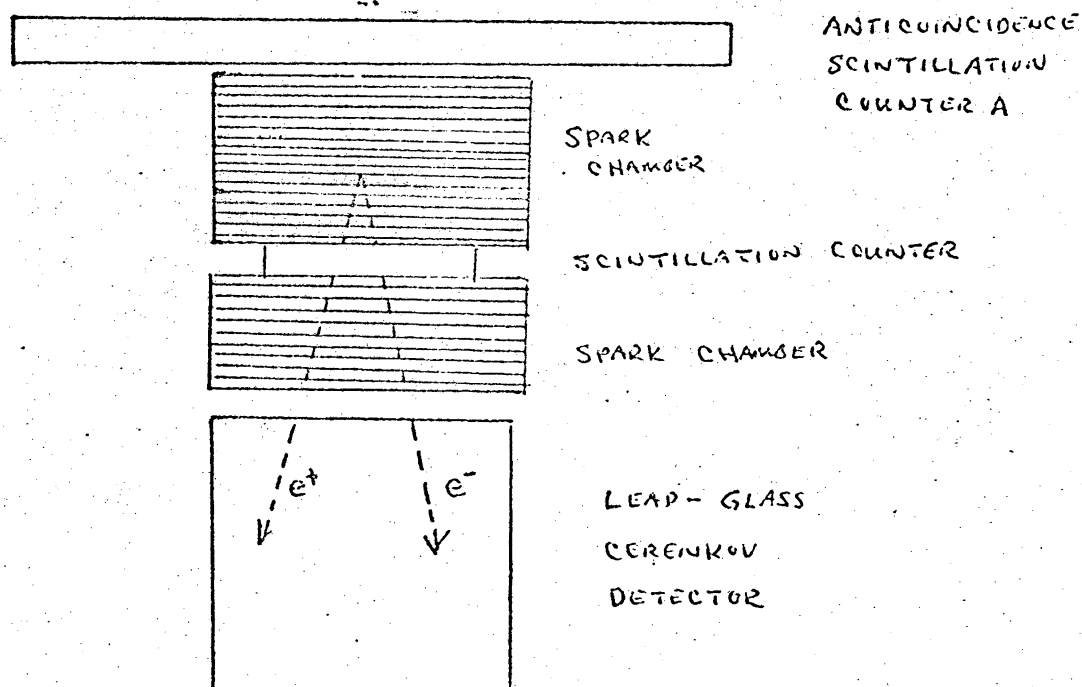 ANTICOINCIDENCE
SCINTILLATION
COUNTER A
SPARK
CHAMBER
SCINTILLATION COUNTER
SPARK CHAMBER
e+
e-
LEAD-GLASS
CERENKOV
DETECTOR